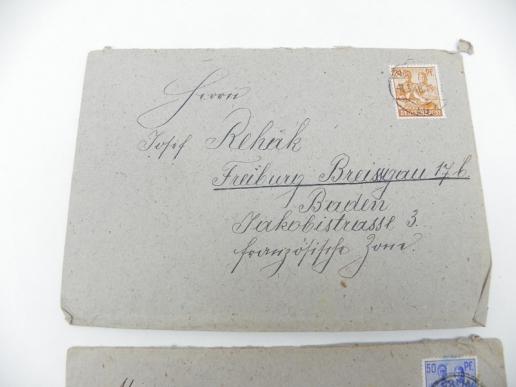 Herrn
Josef Rehák
Freiburg Breisgau 17b.
Baden
Jakobistrasse 3.
französische Zone.
50 PF.